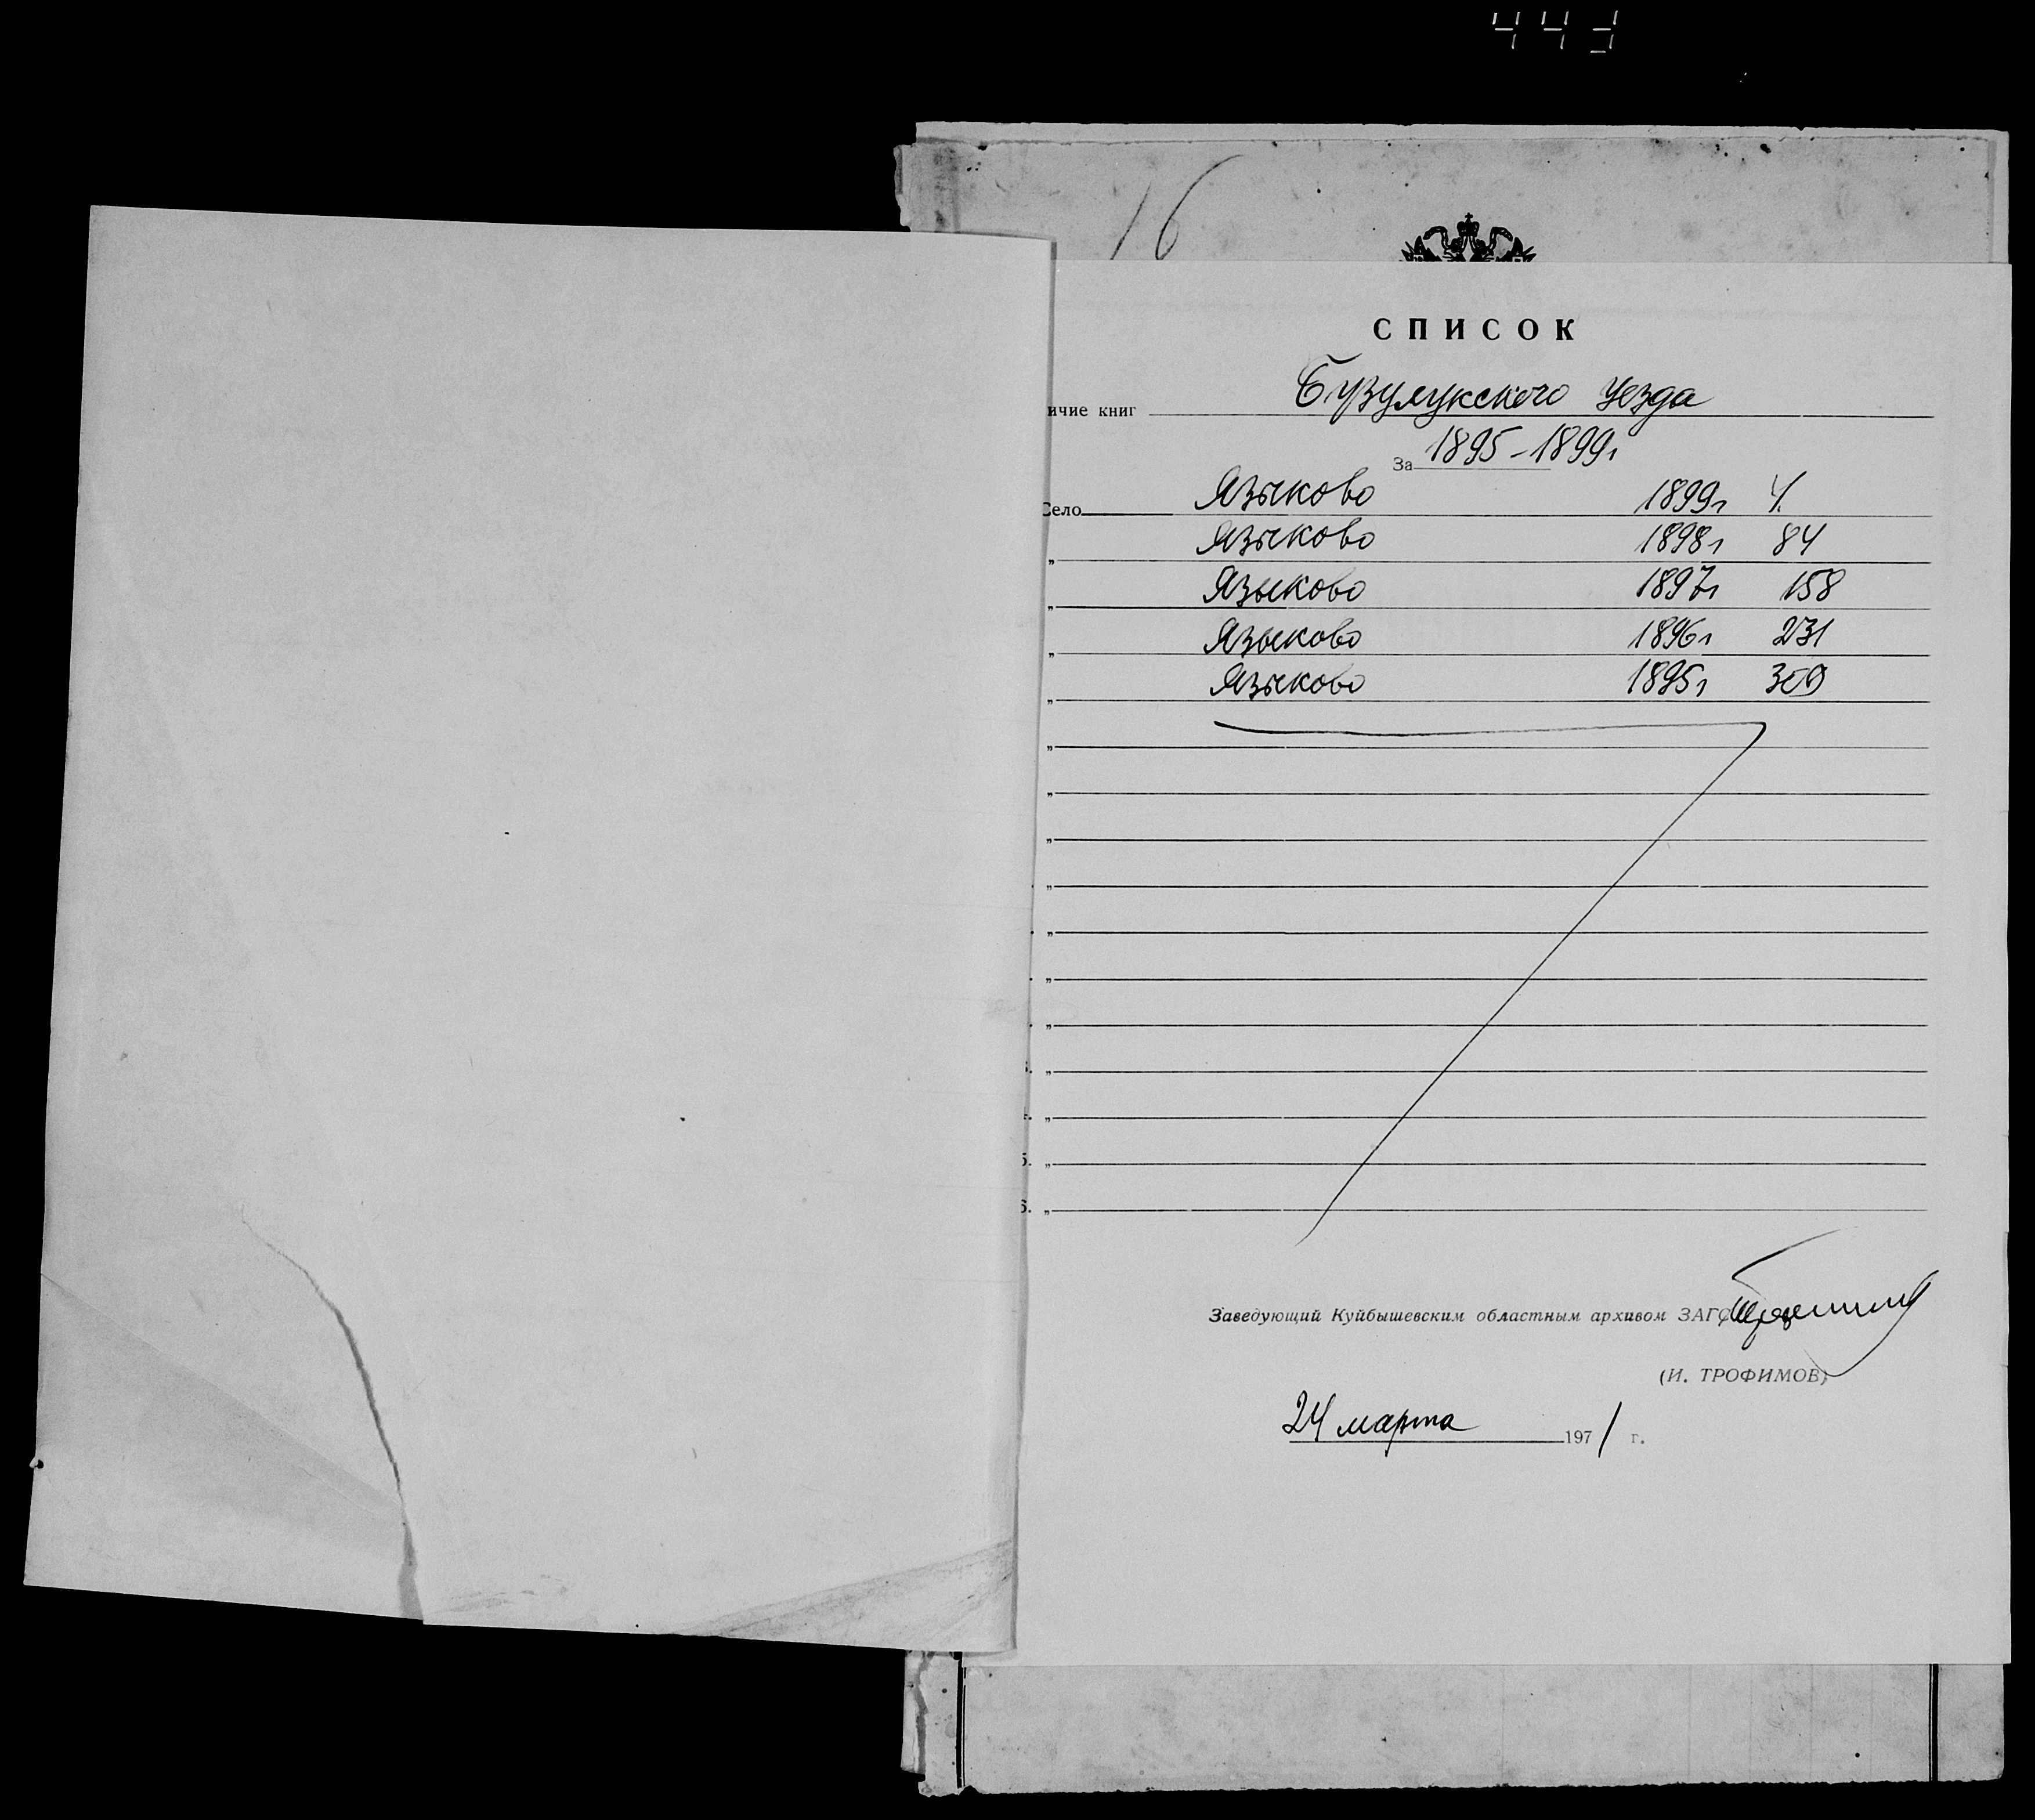 443
16
СПИСОК
ичие книг Бузулукского уезда
За 1895-1899г
Село Языково 1899г 4.
" Языково 1898г 84
" Языково 1897г 158
" Языково 1896г 231
" Языково 1895г 309
"
"
"
"
"
"
"
"
"
5. "
6. "
Заведующий Куйбышевским областным архивом ЗАГС
(И. ТРОФИМОВ)
24 марта 1971 г.